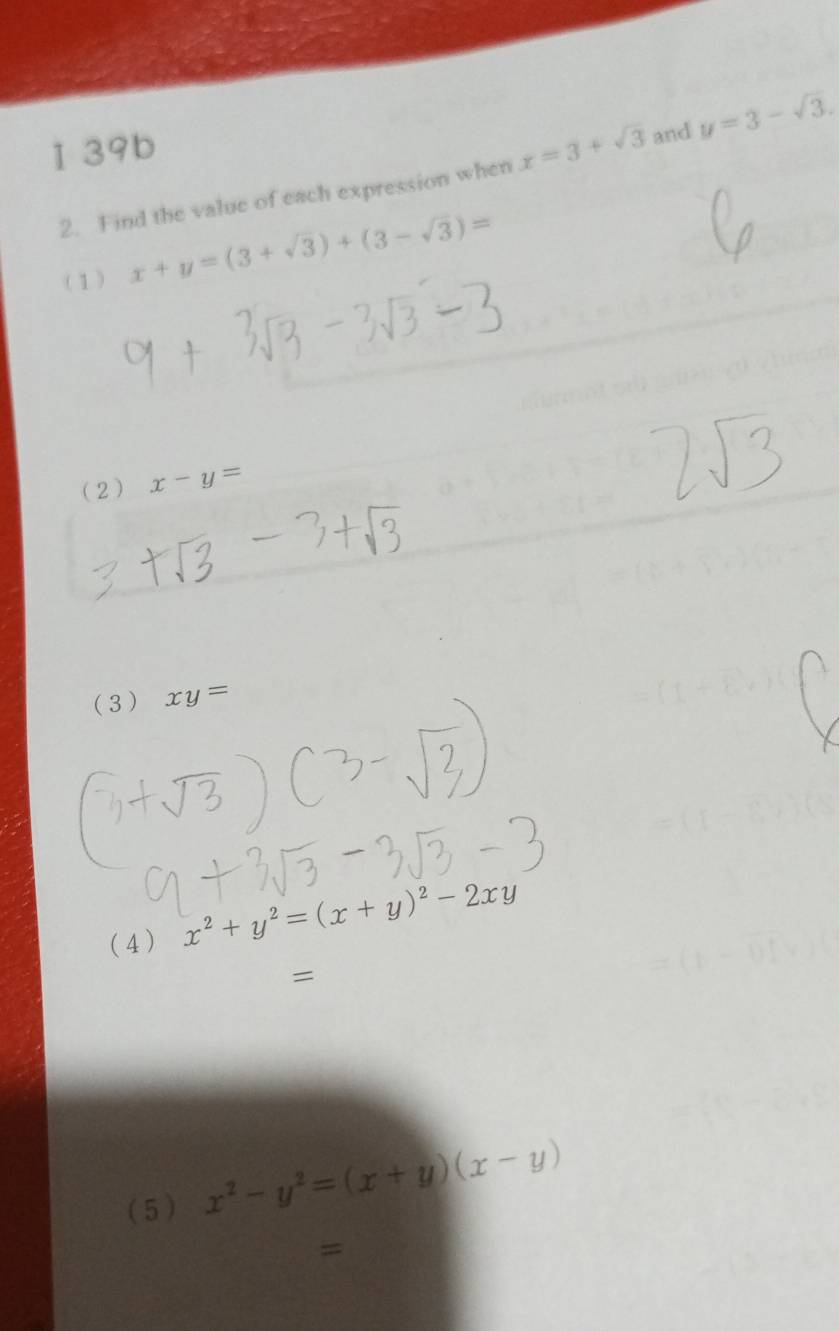 I 39b
2. Find the value of each expression when x = 3 + √3 and y = 3 − √3.
(1) x + y = (3 + √3) + (3 − √3) =
6
9 + 3√3 − 3√3 − 3
(2) x − y =
2√3
3 + √3 − 3 + √3
(3) xy =
6
(3 + √3)(3 − √3)
9 + 3√3 − 3√3 − 3
(4) x² + y² = (x + y)² − 2xy
=
(5) x² − y² = (x + y)(x − y)
=